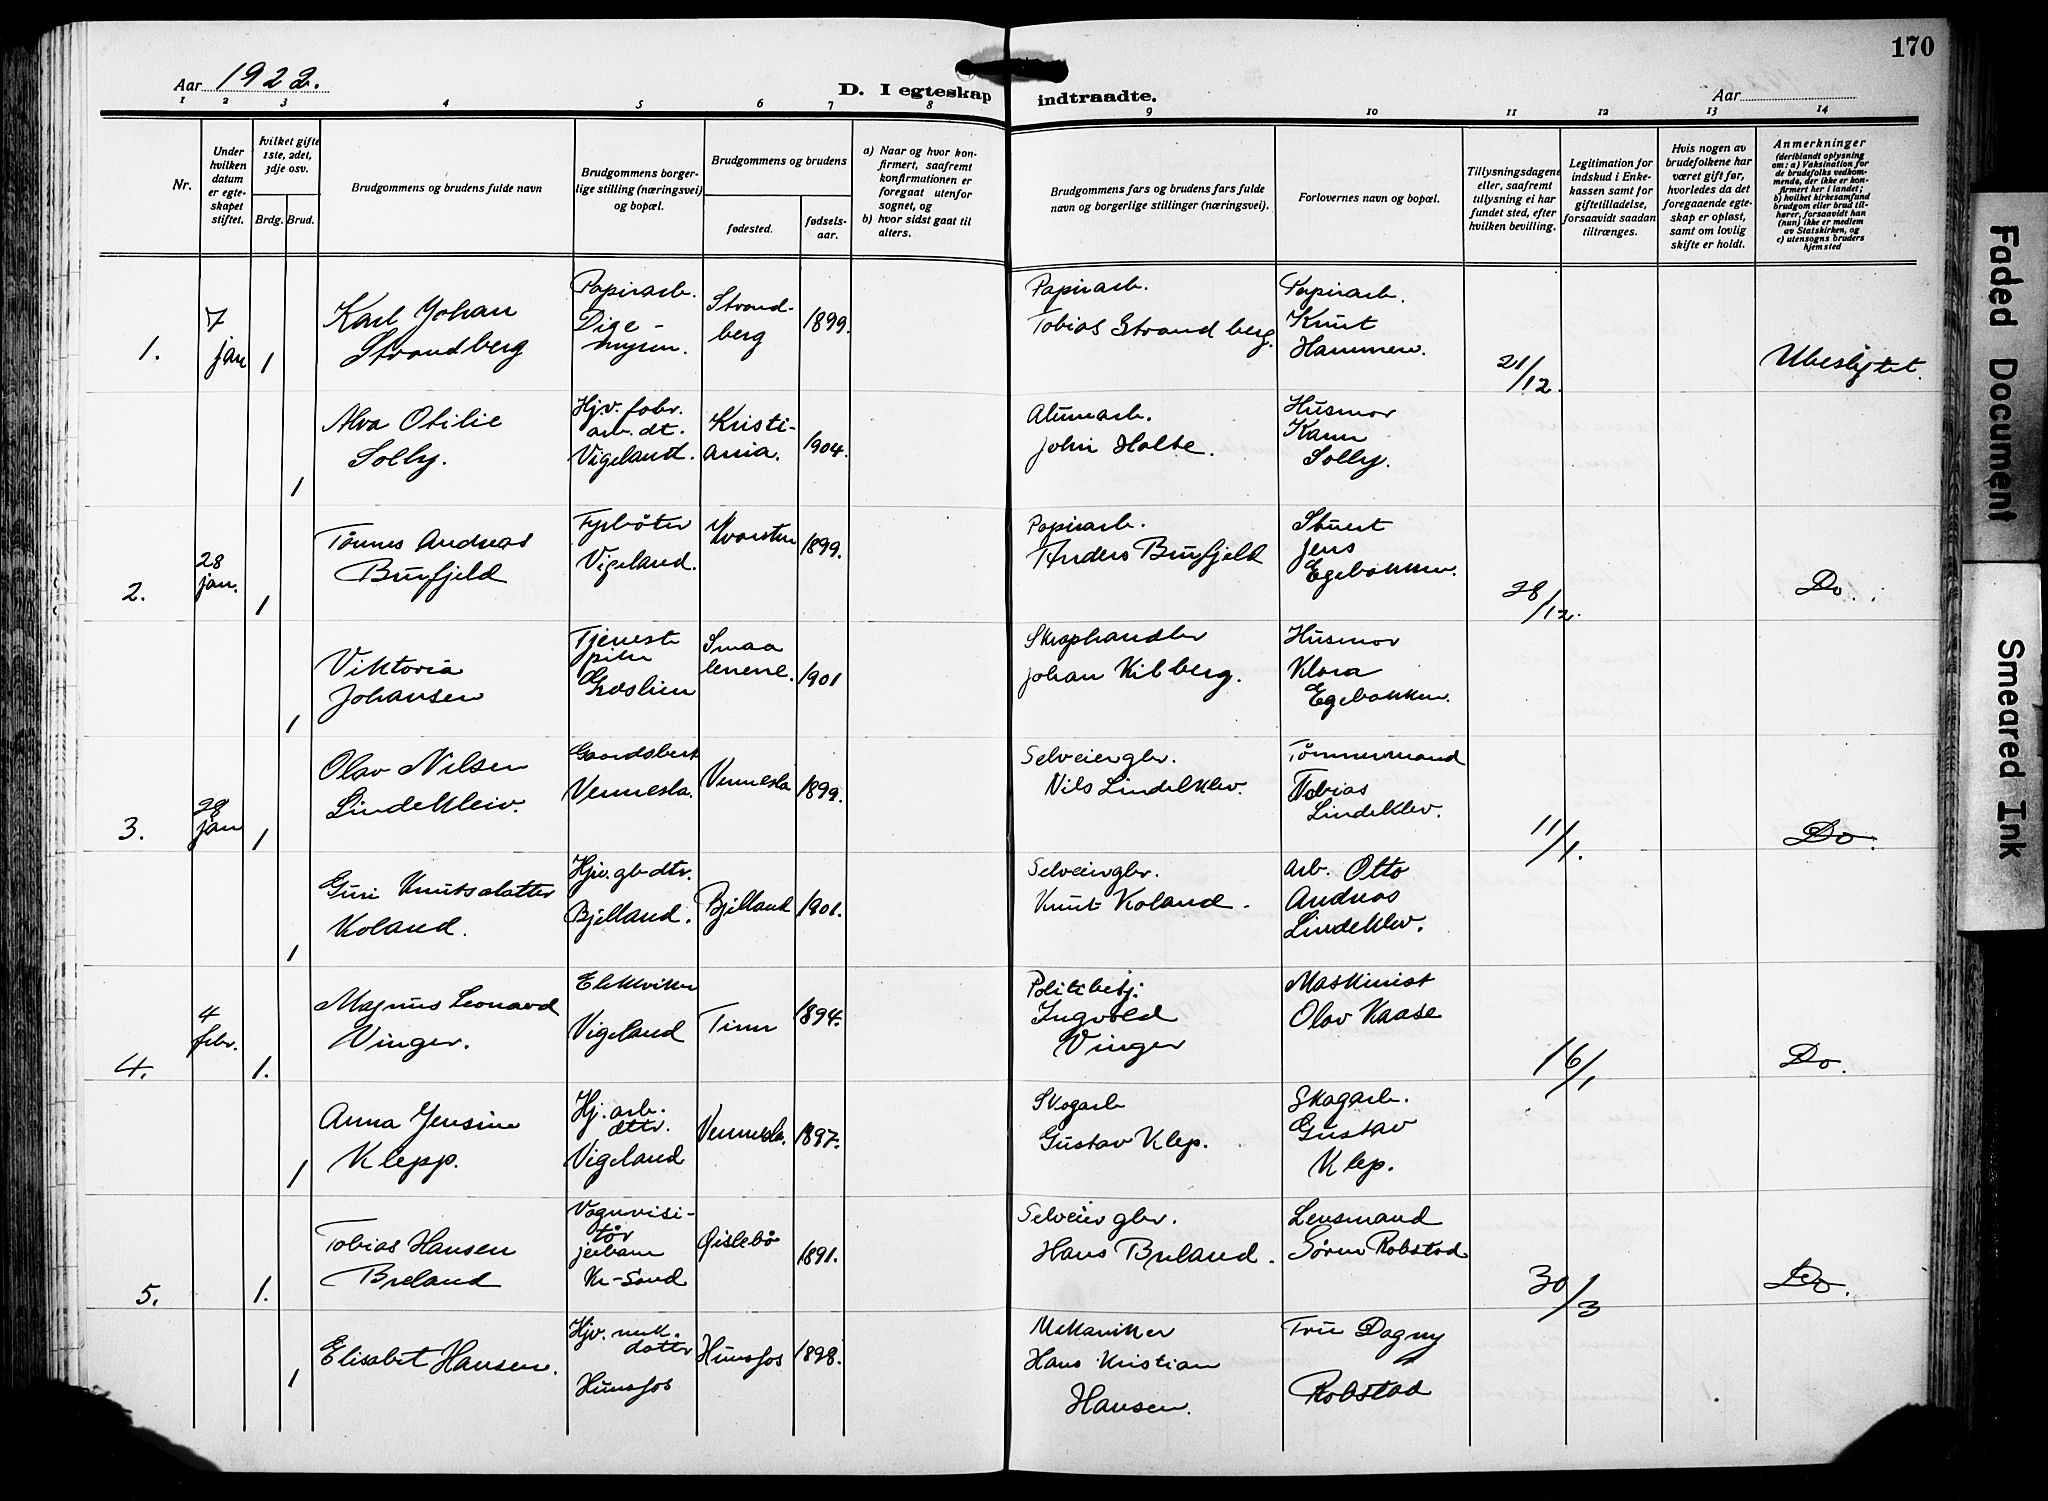 170
Aar 1922.
D. I egteskap indtraadte.
Aar
1 2 3 4 5 6 7 8 9 10 11 12 13 14
Nr.
Under
hvilken
datum
er egte-
skapet
stiftet.
hvilket gifte
1ste, 2det,
3dje osv.
Brdg. Brud.
Brudgommens og brudens fulde navn
Brudgommens borger-
lige stilling (næringsvei)
og bopæl.
Brudgommens og brudens
fødested.
fødsels-
aar.
a) Naar og hvor kon-
firmert, saafremt
konfirmationen er
foregaat utenfor
sognet, og
b) hvor sidst gaat til
alters.
Brudgommens fars og brudens fars fulde
navn og borgerlige stillinger (næringsvei).
Forlovernes navn og bopæl.
Tillysningsdagene
eller, saafremt
tillysning ei har
fundet sted, efter
hvilken bevilling.
Legitimation for
indskud i Enke-
kassen samt for
giftetilladelse,
forsaavidt saadan
tiltrænges.
Hvis nogen av
brudefolkene har
været gift før,
hvorledes da det
foregaaende egte-
skap er opløst,
samt om lovlig
skifte er holdt.
Anmerkninger
(deriblandt oplysning
om: a) Vaksination for
de brudefolks vedkom-
mende, der ikke er kon-
firmert her i landet;
b) hvilket kirkesamfund
brudgom eller brud til-
hører, forsaavidt han
(hun) ikke er medlem
av Statskirken, og
c) utensogns bruders
hjemsted
1.
7
jan
1
Karl Johan
Strandberg
Papirarb.
Dige-
myren.
Strand-
berg
1899.
Papirarb.
Tobias Strandberg.
Papirarb.
Knut
Hammen.
21/12.
Ubeslegtet.
1
Alva Otilie
Solby.
Hjv. fabr.
arb. dt.
Vigeland.
Kristi-
ania.
1904.
Alumarb.
John Holte.
Husmor
Karen
Solby.
2.
28
jan.
1
Tønnes Andreas
Burfjeld
Fyrbøter
Vigeland.
Kvarsten
1899.
Papirarb.
Anders Burfjeld
Stuert
Jens
Egebakken.
28/12.
Do.
1
Viktoria
Johansen
Tjeneste
pike
Graslien
Smaa
lenene.
1901
Skraphandler
Johan Kilberg.
Husmor
Klara
Egebakken.
3.
28
jan
1
Olav Nilsen
Lindekleiv.
Gaardsbest
Vennesla.
Vennesla
1899.
Selveiergbr.
Nils Lindeklev.
Tømmermand
Tobias
Lindeklev.
11/1.
Do.
1
Guri Knutsdatter
Koland.
Hjv. gb dtr.
Bjelland.
Bjelland
1901.
Selveiergbr.
Knut Koland.
Arb. Otto
Andreas
Lindeklev.
4.
4
febr.
1.
Magnus Leonard
Vinger.
Elektriker
Vigeland
Tinn
1894.
Politibetj.
Ingvald
Vinger
Maskinist
Olav Kaase
16/1
Do.
1
Anna Jensine
Klepp.
Hj. arb.
dttr.
Vigeland
Vennesla.
1897.
Skogarb
Gustav Klep.
Skogarb.
Gustav
Klep.
5.
1.
Tobias Hansen
Breland
Vognvisi-
tør
jerbane
Kr-Sand
Øislebø
1891.
Selveiergbr.
Hans Breland.
Lensmand
Søren Robstad
30/3
Do.
1
Elisabet Hansen.
Hjv. mek.
datter
Hunsfos
Hunsfos
1898.
Mekaniker
Hans Kristian
Hansen.
Fru Dagny
Robstad
Faded Document
Smeared Ink